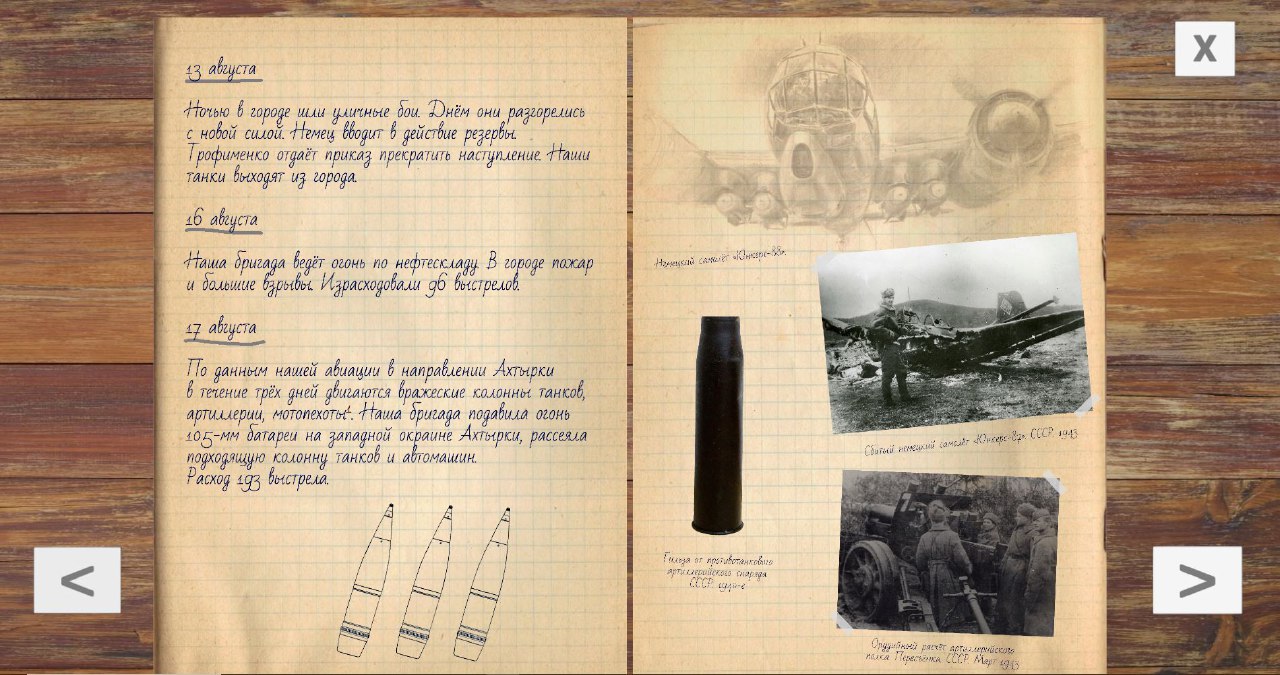 13 августа
Ночью в городе шли уличные бои. Днём они разгорелись
с новой силой. Немец вводит в действие резервы.
Трофименко отдаёт приказ прекратить наступление. Наши
танки выходят из города.
16 августа
Наша бригада ведёт огонь по нефтескладу. В городе пожар
и большие взрывы. Израсходовали 96 выстрелов.
17 августа
По данным нашей авиации в направлении Ахтырки
в течение трёх дней двигаются вражеские колонны танков,
артиллерии, мотопехоты. Наша бригада подавила огонь
105-мм батареи на западной окраине Ахтырки, рассеяла
подходящую колонну танков и автомашин.
Расход 193 выстрела.
Немецкий самолёт «Юнкерс-88».
Сбитый немецкий самолёт «Юнкерс-87». СССР. 1943
Гильза от противотанкового
артиллерийского снаряда
СССР.
Орудийный расчёт артиллерийского
полка. СССР. Март 1943
X
<
>